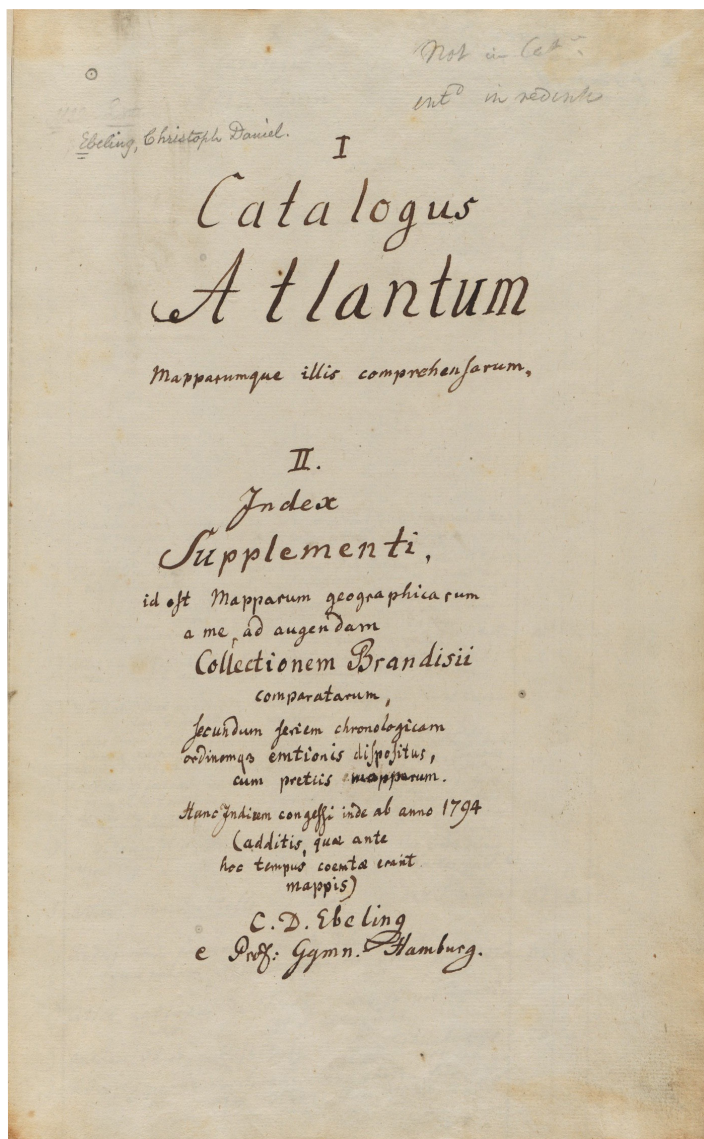 Not in Cat.
ent^d in red ink
Ebeling, Christoph Daniel.
I
Catalogus
Atlantum
Mapparumque illis comprehenſarum,
II.
Index
Supplementi,
id eſt Mapparum geographicarum
a me, ad augendam
Collectionem Brandisii
comparatarum,
ſecundum ſeriem chronologicam
ordinemqз emtionis diſpoſitus,
cum pretiis mapparum.
Hunc Indicem congeſſi inde ab anno 1794
(additis, quæ ante
hoc tempus coemtæ erant
mappis)
C. D. Ebeling
e Prof: Gymn. Hamburg.